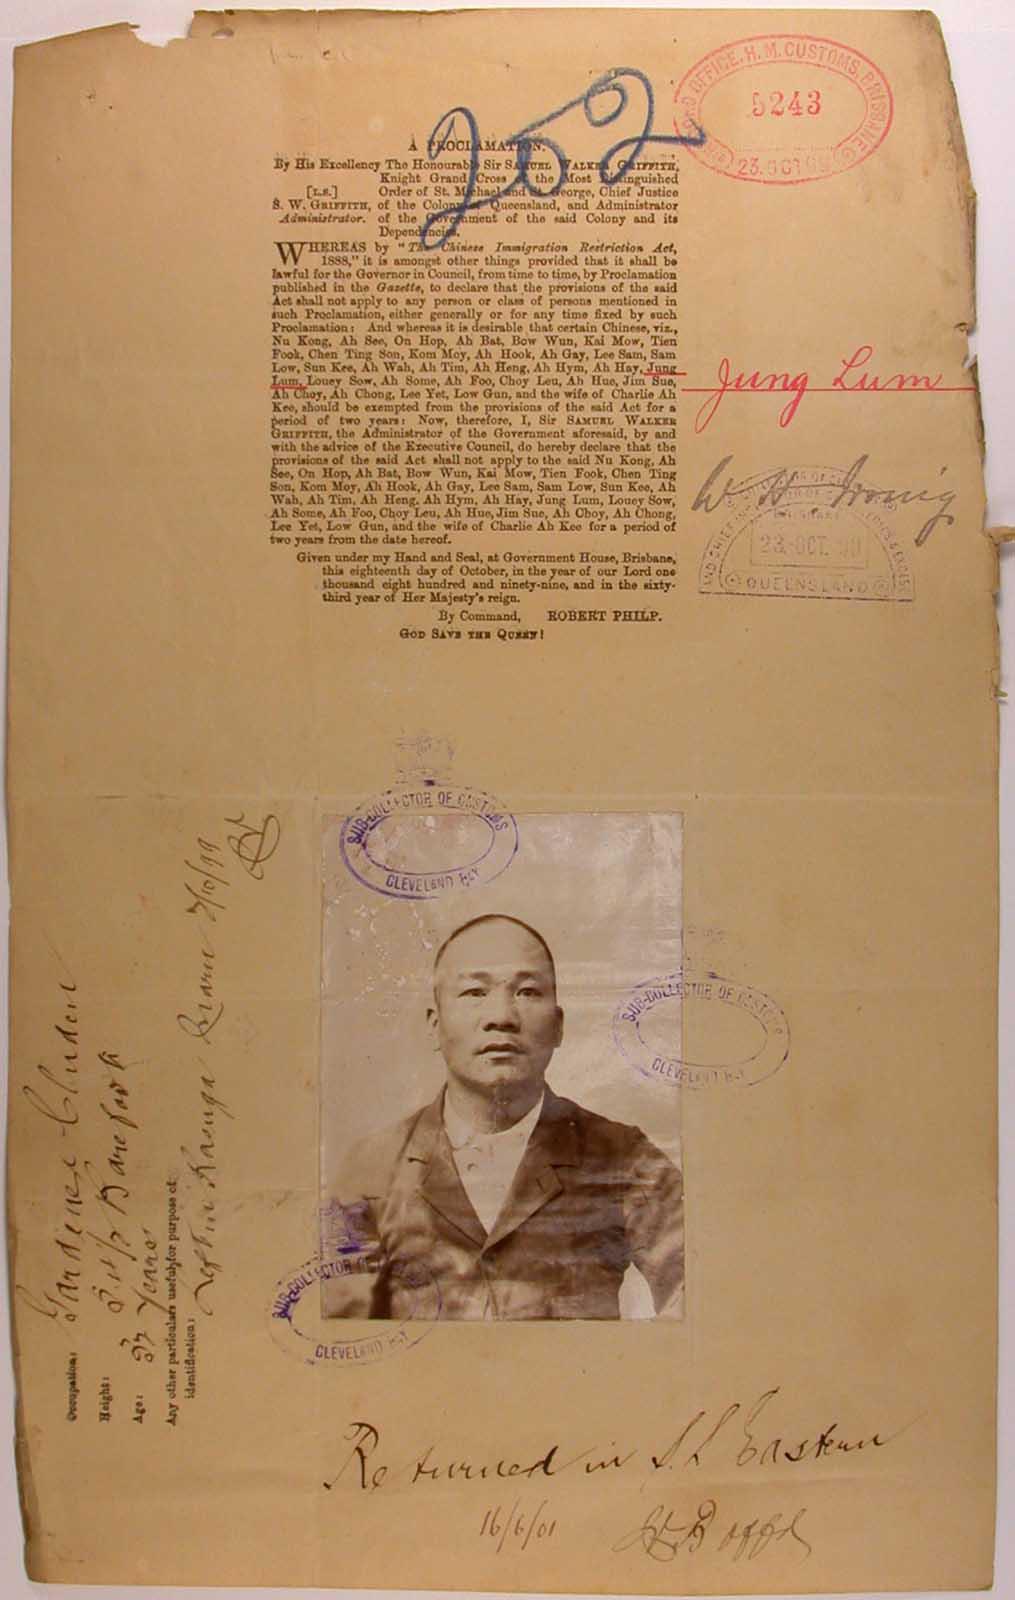 202
RECORD OFFICE, H.M. CUSTOMS, BRISBANE
5243
23. OCT 99
A PROCLAMATION.
By His Excellency The Honourable Sir SAMUEL WALKER GRIFFITH,
Knight Grand Cross of the Most Distinguished
[L.S.] Order of St. Michael and St. George, Chief Justice
S. W. GRIFFITH, of the Colony of Queensland, and Administrator
Administrator. of the Government of the said Colony and its
Dependencies.
WHEREAS by "The Chinese Immigration Restriction Act,
1888," it is amongst other things provided that it shall be
lawful for the Governor in Council, from time to time, by Proclamation
published in the Gazette, to declare that the provisions of the said
Act shall not apply to any person or class of persons mentioned in
such Proclamation, either generally or for any time fixed by such
Proclamation: And whereas it is desirable that certain Chinese, viz.,
Nu Kong, Ah See, On Hop, Ah Bat, Bow Wun, Kai Mow, Tien
Fook, Chen Ting Son, Kom Moy, Ah Hook, Ah Gay, Lee Sam, Sam
Low, Sun Kee, Ah Wah, Ah Tim, Ah Heng, Ah Hym, Ah Hay, Jung
Lum, Louey Sow, Ah Some, Ah Foo, Choy Leu, Ah Hue, Jim Sue,
Ah Choy, Ah Chong, Lee Yet, Low Gun, and the wife of Charlie Ah
Kee, should be exempted from the provisions of the said Act for a
period of two years: Now, therefore, I, Sir SAMUEL WALKER
GRIFFITH, the Administrator of the Government aforesaid, by and
with the advice of the Executive Council, do hereby declare that the
provisions of the said Act shall not apply to the said Nu Kong, Ah
See, On Hop, Ah Bat, Bow Wun, Kai Mow, Tien Fook, Chen Ting
Son, Kom Moy, Ah Hook, Ah Gay, Lee Sam, Sam Low, Sun Kee, Ah
Wah, Ah Tim, Ah Heng, Ah Hym, Ah Hay, Jung Lum, Louey Sow,
Ah Some, Ah Foo, Choy Leu, Ah Hue, Jim Sue, Ah Choy, Ah Chong,
Lee Yet, Low Gun, and the wife of Charlie Ah Kee for a period of
two years from the date hereof.
Given under my Hand and Seal, at Government House, Brisbane,
this eighteenth day of October, in the year of our Lord one
thousand eight hundred and ninety-nine, and in the sixty-
third year of Her Majesty's reign.
By Command, ROBERT PHILP.
GOD SAVE THE QUEEN!
Jung Lum
W H Irving
23. OCT. 99
QUEENSLAND
SUB-COLLECTOR OF CUSTOMS
CLEVELAND BAY
SUB-COLLECTOR OF CUSTOMS
CLEVELAND BAY
SUB-COLLECTOR OF
CLEVELAND BAY
Occupation: Gardener Cluden
Height: Barefoot
Age: 37 Years
Any other particulars useful for purpose of
identification:
Left in Kasuga 2/10/99
Returned in S.S Eastern
16/6/01